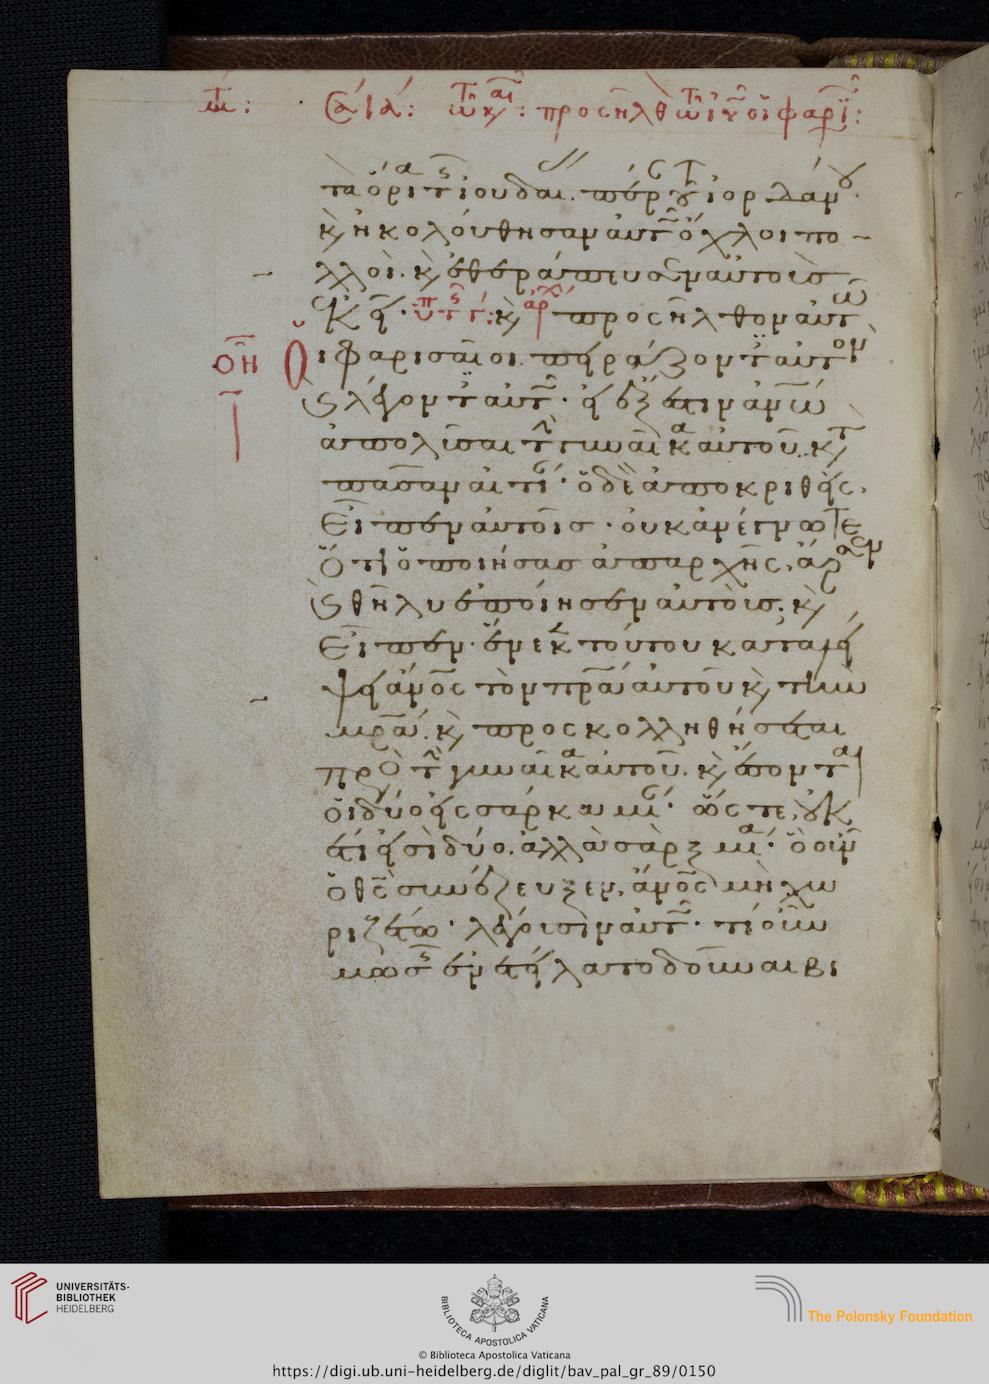 τὰ ὅρια τῆς ἰουδαίας. πέραν τοῦ ἰορδάνου.
κ ἠκολούθησαν αὐτῶ ὄχλοι πο
λλοί. κ ἐθεράπευσεν αὐτοὺς
ἐκεῖ. κ προσῆλθον αὐτῶ
ὁῆ οἱ φαρισαῖοι πειράζοντες αὐτὸν
κ λέγοντες αὐτῶ. εἰ ἔξεστιν ἀνω
ἀπολῦσαι τὴν γυναῖκα αὐτοῦ. κατὰ
πᾶσαν αἰτίαν. ὁ δὲ ἀποκριθεὶς,
εἶπεν αὐτοῖς. οὐκ ἀνέγνωτε
ὅτι ὁ ποιήσας ἀπαρχῆς, ἄρσεν
κ θῆλυ ἐποίησεν αὐτούς. κ
εἶπεν. ἕνεκεν τούτου καταλεί
ψει ἀνος τὸν πρα αὐτοῦ κ τὴν
μρα. κ προσκολληθήσεται
πρὸς τὴν γυναῖκα αὐτοῦ. κ ἔσονται
οἱ δύο εἰς σάρκα μίαν. ὥστε, οὐκ
ἔτι εἰσὶ δύο. ἀλλὰ σὰρξ μία. ὃ οὖν
ὁ θς συνέζευξεν, ἀνος μὴ χω
ριζέτω. λέγουσιν αὐτῶ. τί οὖν
μωσῆς ἐνετείλατο δοῦναι βι
UNIVERSITÄTS-
BIBLIOTHEK
HEIDELBERG
BIBLIOTECA APOSTOLICA VATICANA
The Polonsky Foundation
© Biblioteca Apostolica Vaticana
https://digi.ub.uni-heidelberg.de/diglit/bav_pal_gr_89/0150